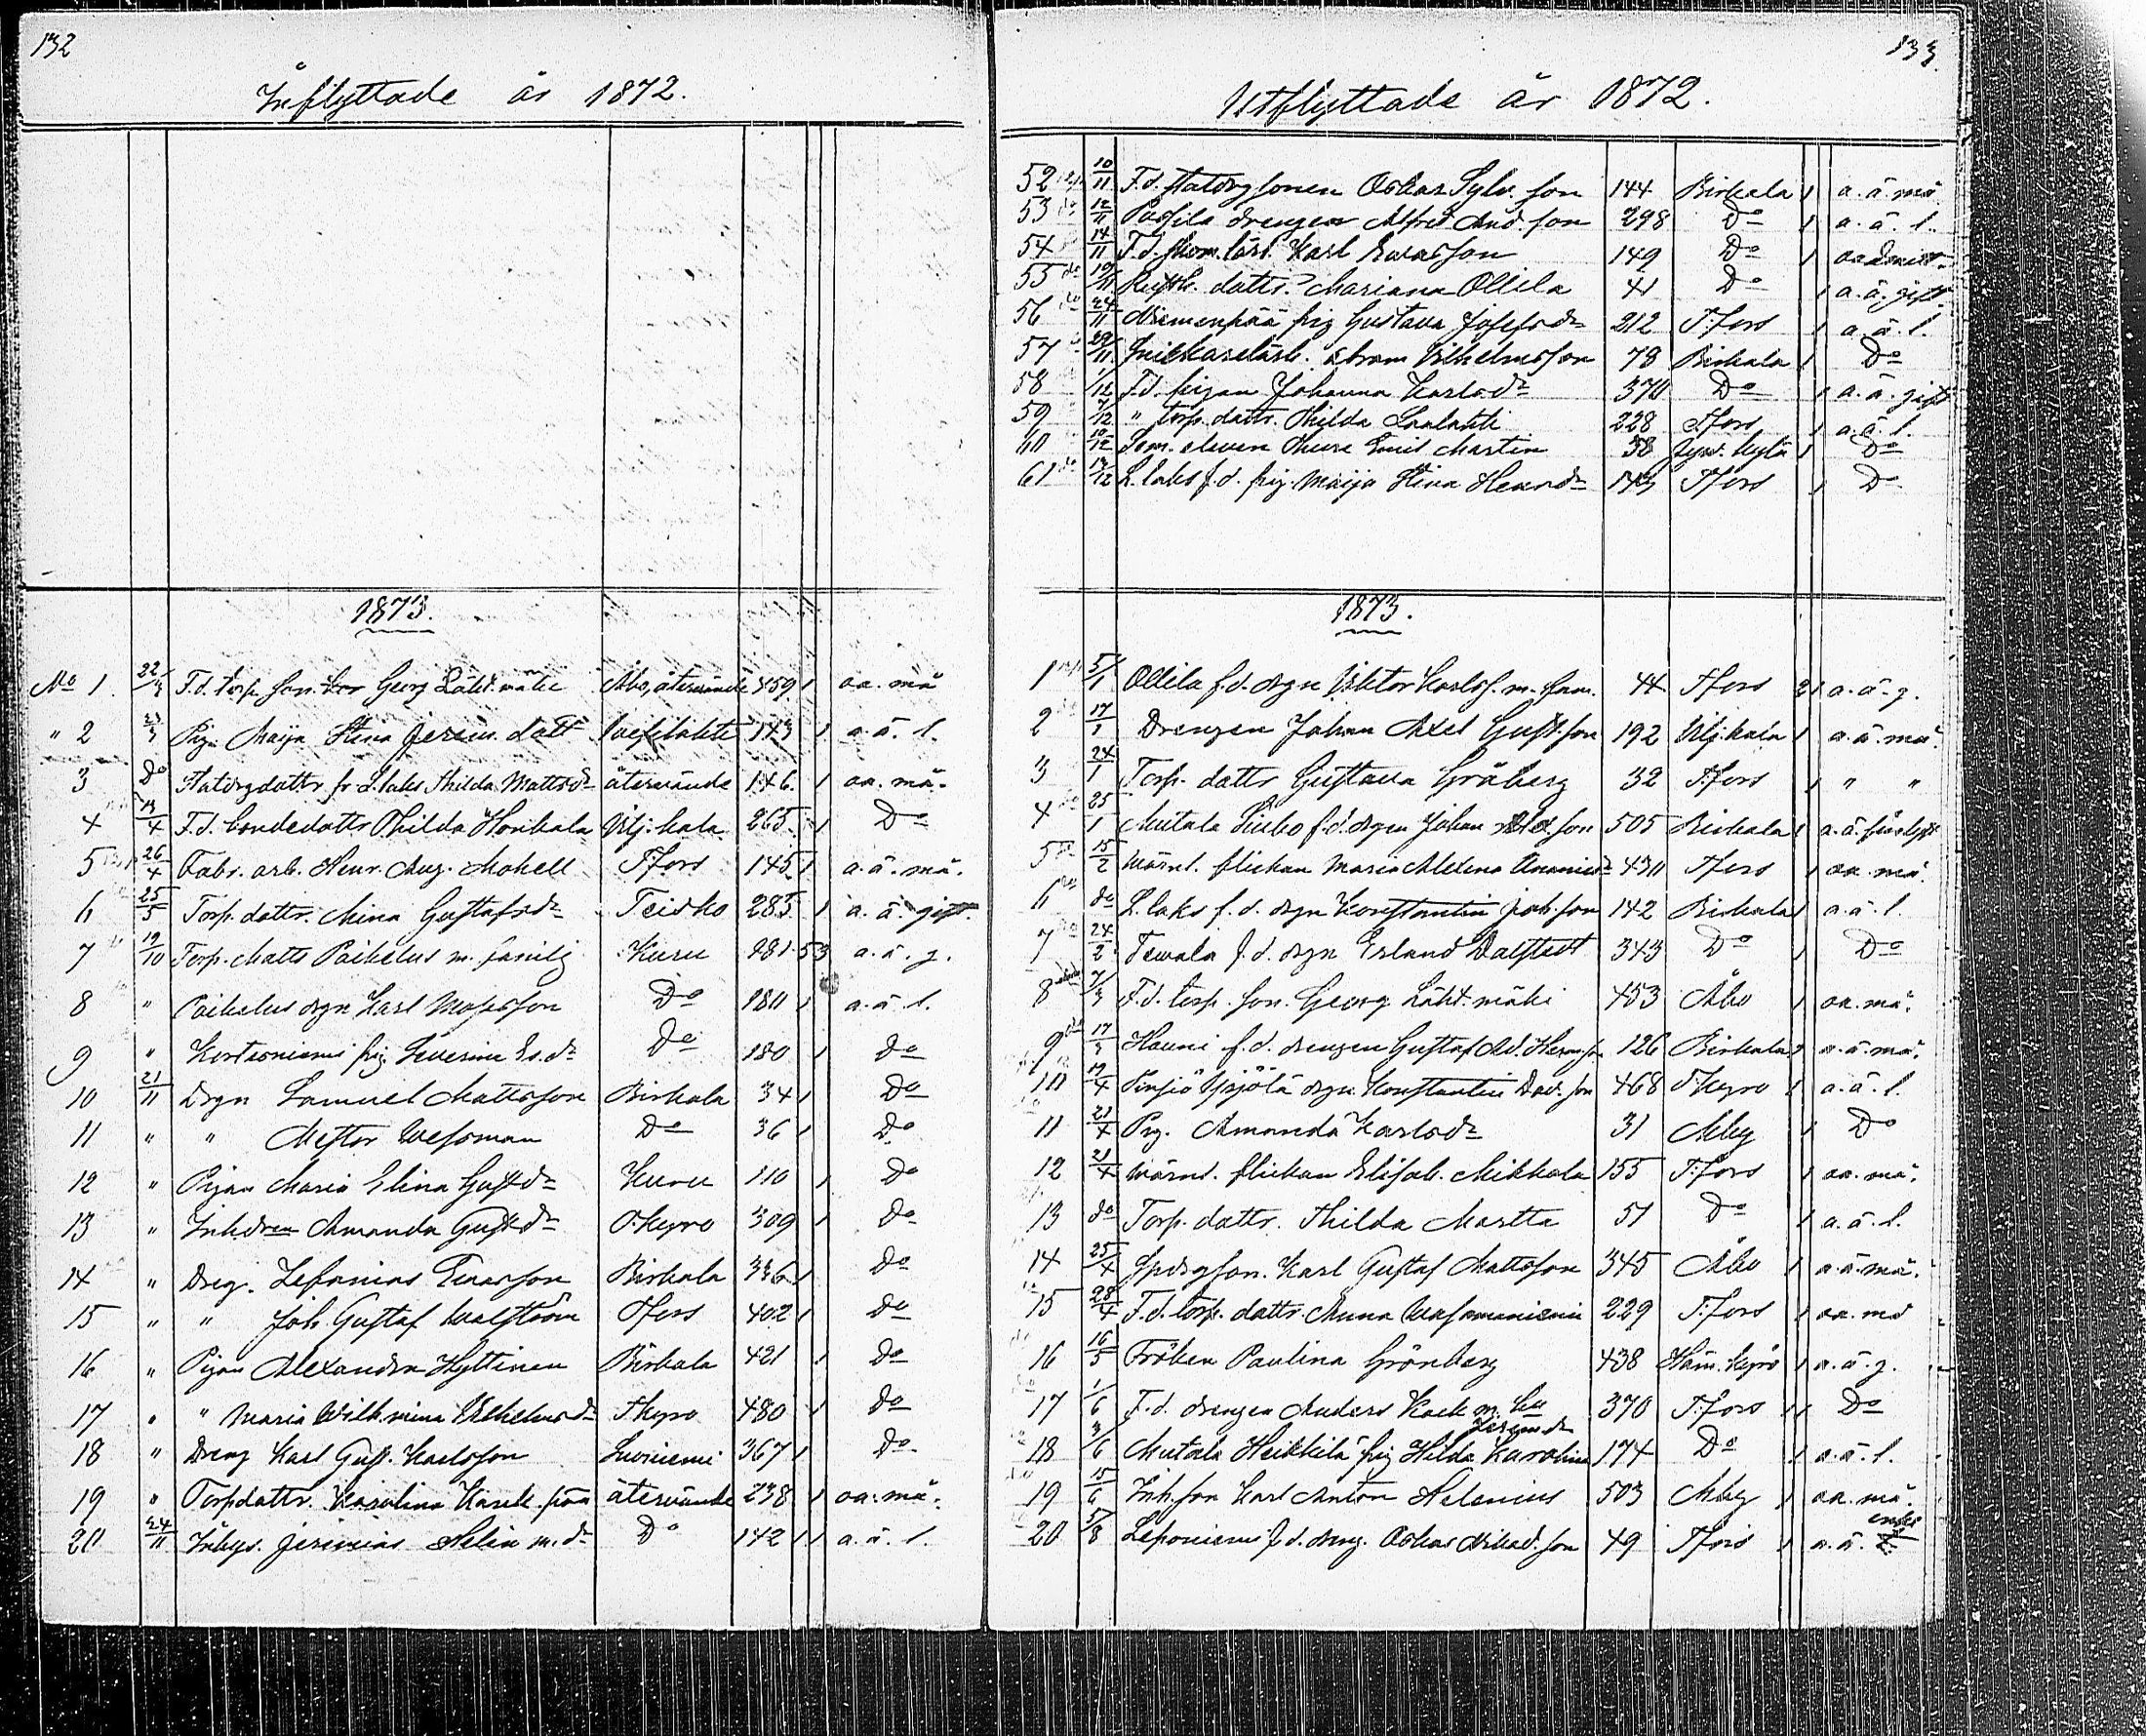 132
Inflyttade år 1872.
1873.
No 1. 22/3 F.d. torp. son Georg Läht.mäki Åbo, återvände 459 1 oa. må
" 2 Pig. Maija Stina Jerem. dott Vesilahti 143 1 a.ä. l.
3 Do Statdrgdottr fr L.laks Thilda Mattsdr återvände 146. 1 oa. må.
4 13/4 F.d. bondedottr Thilda Honkala Ylj.kala 265. 1 Do
5 26/4 Fabr. arb. Henr. Aug. Mokell Tfors 145 1 a.ä. må.
6 25/5 Torp. dottr. Mina Gustafsdr Teisko 283 1 a. ä. gift.
7 19/10 Torp. Matts Paikelus m. familj Kuru 181 5 3 a.ä. g.
8 " Paikelus drgn Karl Matsson Do 180 1 a.ä l.
9 " Kortesniemi pig. Severina Do 180 1 Do
10 21/11 Drgn Samuel Mattsson Birkala 34 1 Do
11 " " Nestor Wessman Do 36 1 Do
12 " Pigan Maria Elina Gustdr Kuru 110 1 Do
13 " Inhdren Amanda Gustdr T.kyro 309 1 Do
14 " Dreg. Sefanias Enarsson Birkala 336 1 Do
15 " " Joh. Gustaf Walström Tfors 402 1 Do
16 " Pigan Alexandra Hyttinen Birkala 421 1 Do
17 " " Maria Wilhmina Wilhelmsdr T.kyro 480 1 Do
18 " Dreng Karl Gust. Karlsson Suoniemi 367 1 Do
19 " Torpdottr. Karolina återvände 238 1 oa. må.
20 24/11 Inhys. Jeremias Helin m. dr Do 142 1 1 a.ä. l.
133.
Utflyttade år 1872.
52 10/11 F.d. statdrgsonen Oskar Sylv. son 144 Birkala 1 a.ä. må
53 do 12/11 drengen Alfred And. son 298 Do 1 a.ä. l.
54 14/11 F.d. skom. lärl. Karl Ewasson 149 Do 1
55 do 19/11 dottr. Mariana Ollila 41 Do 1 a.ä. gift
56 do 24/11 Niemenpää pig Gustava Josefsdr 212 T.fors 1 a.ä. l.
57 29/11 Abram Wilhelmsson 78 Birkala 1 Do
58 1/12 F.d. pigan Johanna Karlsdr 370 Do 1 a.ä. gift
59 7/12 " torp. dottr. Thilda Laalahti 228 Tfors 1 a.ä. l.
60 10/12 Sem. eleven Ture Emil Martin 38 Jyvä.kylä 1 Do
61 do 13/12 L.laks f.d. pig. Maija Stina Henrdr 143 Tfors 1 Do
1873.
1 5/1 Ollila f.d. drgn Viktor Karlss. m. fam. 44 Tfors 2 1 a.ä. g.
2 17/1 Drengen Johan Axel Gust.son 192 Ylj.kala 1 a.ä. må.
3 24/1 Torp. dottr Gustava Gråberg 32 T.fors 1 " "
4 25/1 Mutala f.d. drgn Johan son 505 Birkala 1 a.ä.
5 15/2 Wärnl. flickan Maria Ananiasdr 430 Tfors 1 oa. må.
6 do L.laks f.d. drgn Konstantin Joh.son 142 Birkala 1 a.ä. l.
7 24/2 Tewala f.d. drgn Erland Dalstedt 343 Do 1 Do
8 7/3 F.d. torp. son. Georg Läht.mäki 453 Åbo 1 oa. må.
9 do 17/3 Hauni f.d. drengen Gustaf Ad. 126 Birkala a.ä. må.
10 19/4 Pinsiö Yöjölä drgn. Konstantin Dav. son 468 T.kyro 1 a.ä. l.
11 21/4 Pig. Amanda Karlsdr 31 Mby 1 Do
12 21/4 Wärnl. flickan Elisab. Mikkola 155 T.fors 1 oa. må.
13 do Torp. dottr. Thilda Martta 51 Do 1 a.ä. l.
14 25/4 Karl Gustaf Mattsson 345 Åbo 1 a.ä. må.
15 28/4 F.d. torp. dottr. Anna 229 T.fors 1 oa. må
16 16/5 Fröken Paulina Grönberg 438 Häm.kyrö 1 a.ä. g.
17 1/6 F.d. drengen Anders m. hu 370 T.fors 1 1 Do
18 3/6 Mutala Heikkilä pig Hilda Karolina Jeremdr 174 Do 1 a.ä. l.
19 15/6 Inh. son Karl Anton Helenius 503 Mby 1 oa. må.
20 5/8 f.d. dreng. Oskar son 49 Tfors 1 a.ä.